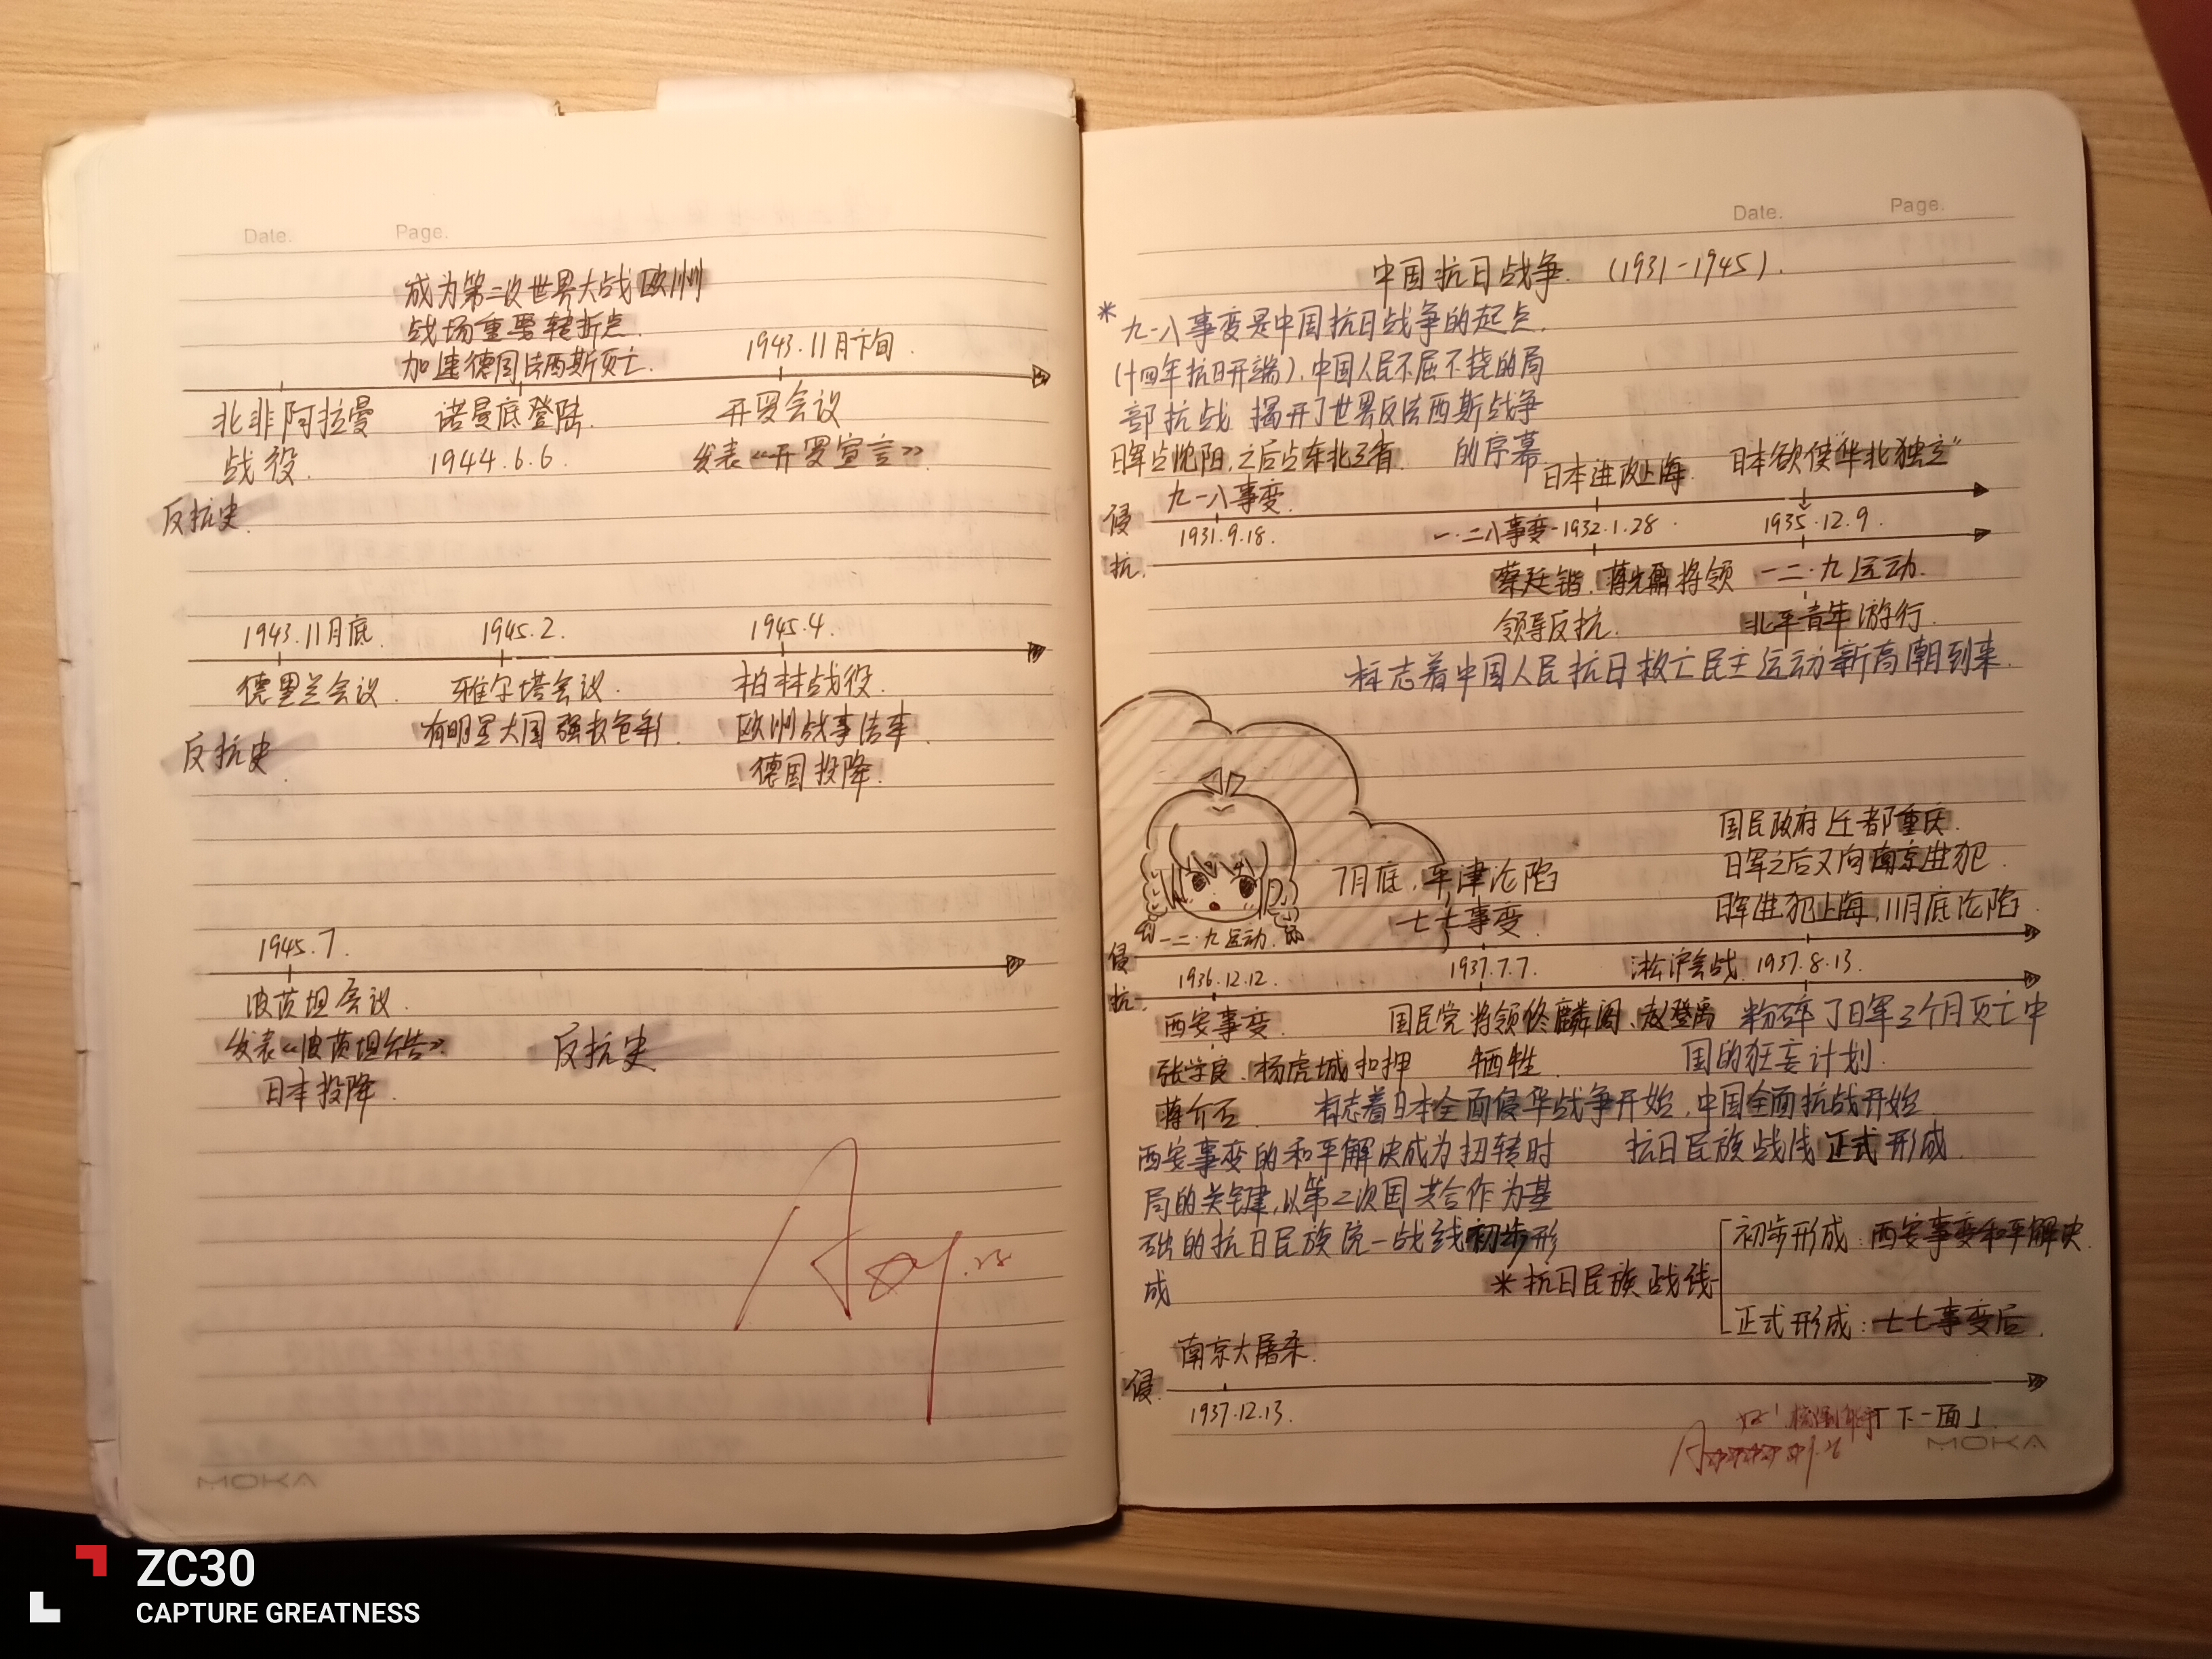 Date. Page.
成为第二次世界大战欧洲
战场重要转折点.
加速德国法西斯灭亡.
1943.11月下旬.
北非阿拉曼
战役.
诺曼底登陆.
1944.6.6.
开罗会议
发表《开罗宣言》.
反抗史.
1943.11月底. 1945.2. 1945.4.
德里兰会议. 雅尔塔会议. 柏林战役.
有明显大国强权色彩. 欧洲战事结束.
反抗史.
德国投降.
1945.7.
波茨坦会议.
发表《波茨坦公告》.
日本投降.
反抗史.
MOKA
Date. Page.
中国抗日战争. (1931-1945).
*九一八事变是中国抗日战争的起点.
(十四年抗日开端),中国人民不屈不挠的局
部抗战 揭开了世界反法西斯战争
的序幕
日军占沈阳,之后占东北三省.
日本进攻上海. 日本欲使"华北独立"
侵 九一八事变.
1931.9.18. 一·二八事变-1932.1.28. 1935.12.9.
抗.
蔡廷锴、蒋光鼐将领
领导反抗.
一二·九运动.
北平青年游行.
标志着中国人民抗日救亡民主运动新高潮到来.
国民政府迁都重庆.
日军之后又向南京进犯.
日军进犯上海,11月底沦陷.
7月底,平津沦陷
七七事变.
一二·九运动.
侵
1936.12.12. 1937.7.7. 淞沪会战. 1937.8.13.
抗.
西安事变.
张学良、杨虎城扣押
蒋介石.
国民党将领佟麟阁、赵登禹
牺牲.
粉碎了日军3个月灭亡中
国的狂妄计划.
标志着日本全面侵华战争开始,中国全面抗战开始.
西安事变的和平解决成为扭转时
局的关键,以第二次国共合作为基
础的抗日民族统一战线初步形
成
抗日民族战线正式形成.
*抗日民族战线
初步形成:西安事变和平解决.
正式形成:七七事变后.
南京大屠杀.
侵.
1937.12.13.
「下一面」.
MOKA
ZC30
CAPTURE GREATNESS